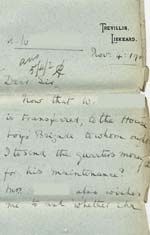 TREVILLIS,
LISKEARD.
Nov. 4. 190
Dear Sir,
Now that W.
is transferred, to the House
Boys Brigade to whom ought
I to send the quarters money
for his maintenance?
Mrs. also wishes
me to ask whether she